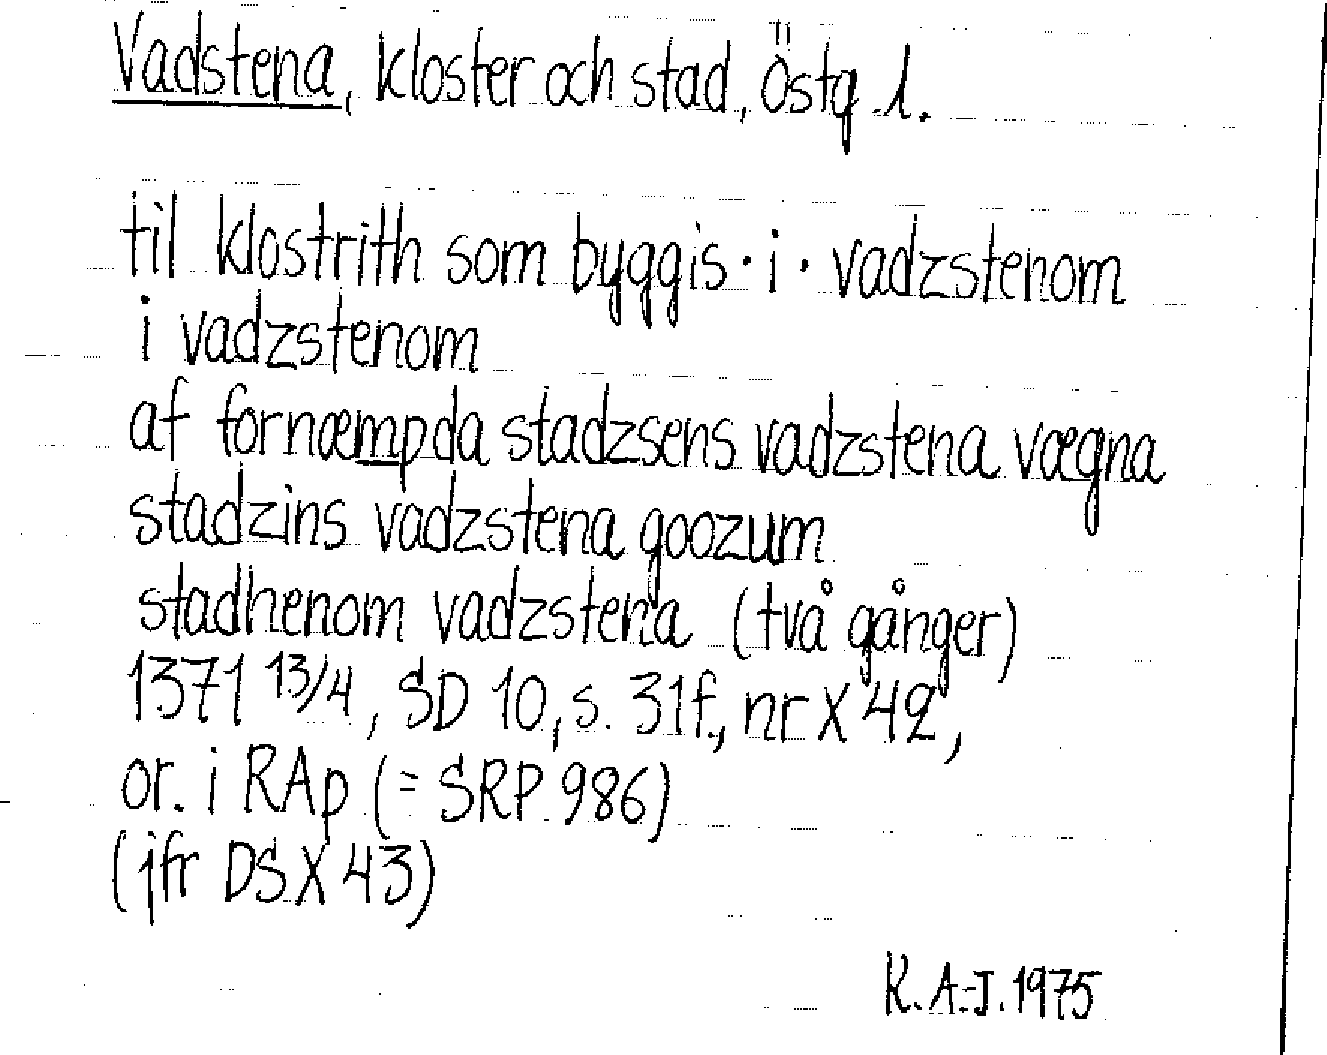 Vadstena, kloster och stad, Östg l.
til klostrith som byggis · i · vadzstenom
i vadzstenom
af fornæmpda stadzsens vadzstena vægna
stadzins vadzstena goozum
stadhenom vadzstena (två gånger)
1371 13/4, SD 10, s. 31f., nr X 42,
or. i RAp (= SRP 986)
(jfr DS X 43)
K. A-J. 1975